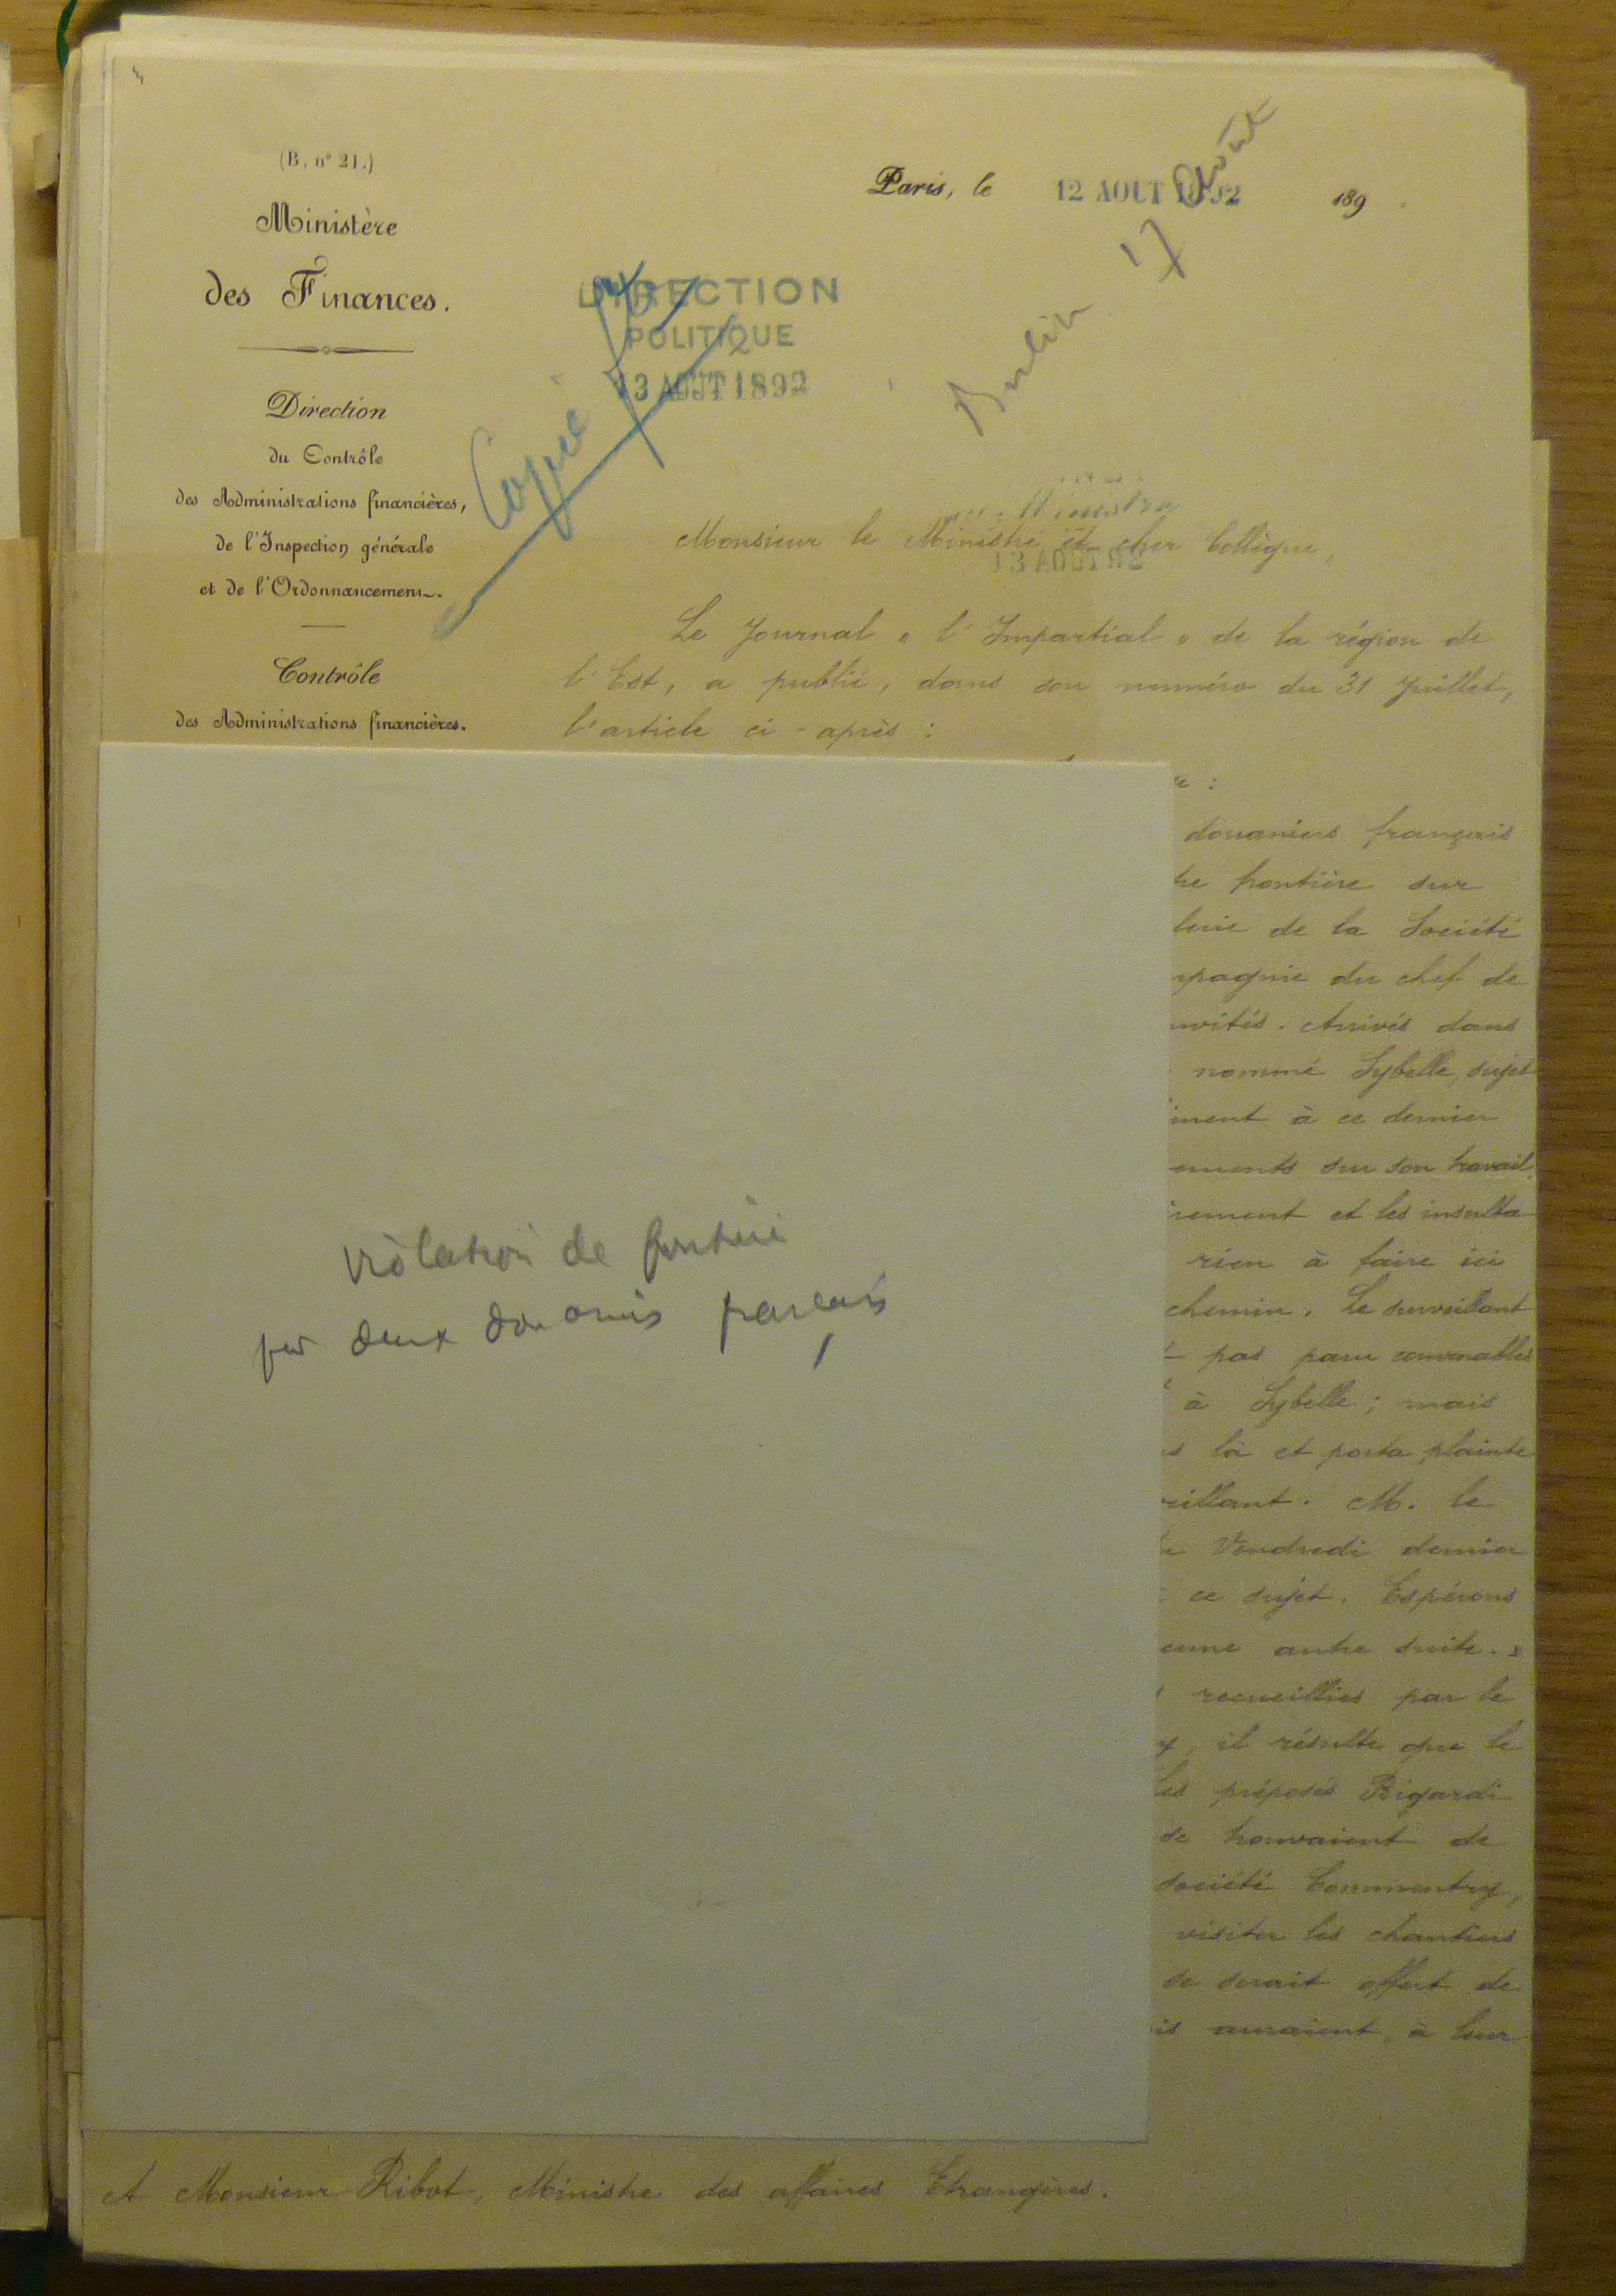 (B. n° 21.)
Ministère
des Finances.
Direction
du Contrôle
des Administrations financières,
de l'Inspection générale
et de l'Ordonnancement.
Contrôle
des Administrations financières.
Paris, le 12 AOUT 1892 189
Berlin 17 Août
DIRECTION
POLITIQUE
13 AOUT 1892
Copié
Ministre
13 AOUT 92
Monsieur le Ministre et cher Collègue,
Le Journal " l'Impartial " de la région de
l'Est, a publié, dans son numéro du 31 Juillet,
l'article ci-après :
douaniers français
frontière sur
de la Société
du chef de
Arrivés dans
nommé Sybelle, sujet
à ce dernier
sur son travail.
et les insulta
rien à faire ici
chemin. Le surveillant
pas paru convenables
à Sybelle ; mais
là et porta plainte
M. le
Vendredi dernier
ce sujet. Espérons
autre suite. "
recueillies par le
il résulte que le
préposés Bigardi
se trouvaient de
société Commentry,
visiter les chantiers
se serait offert de
auraient, à leur
violation de frontière
par deux douaniers français
A Monsieur Ribot, Ministre des affaires Etrangères.